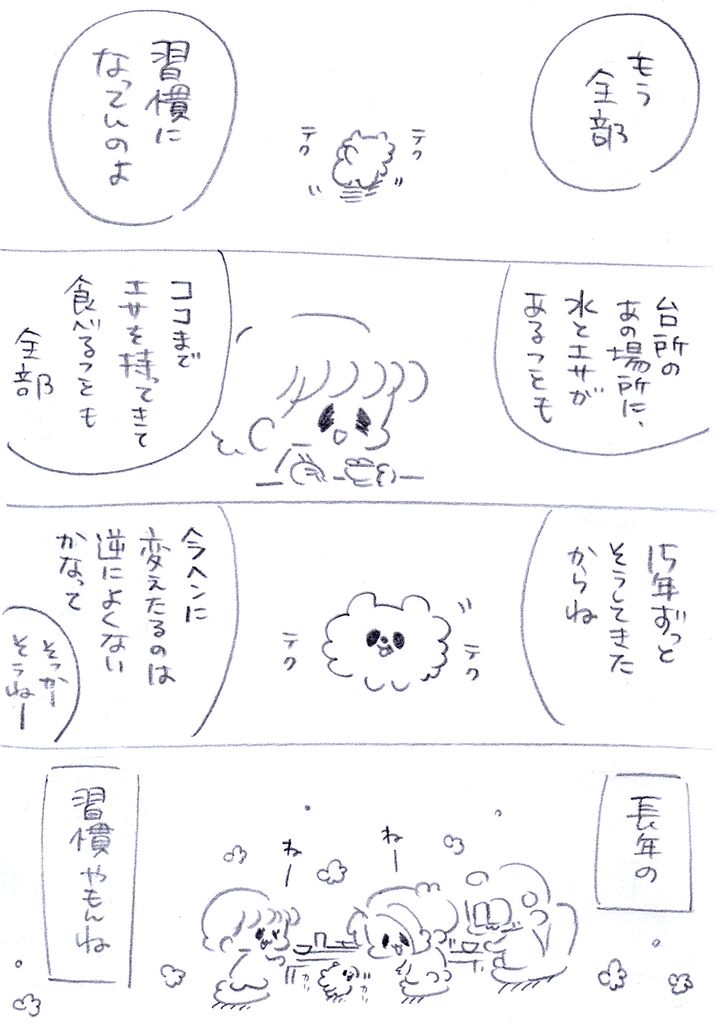 もう
全部
テク
テク
習慣に
なっているのよ
台所の
あの場所に、
水とエサが
あることも
ココまで
エサを持ってきて
食べることも
全部
15年ずっと
そうしてきた
からね
テク
テク
今ヘンに
変えたるのは
逆によくない
かなって
そっかー
そうねー
長年の
ねー
ねー
習慣やもんね